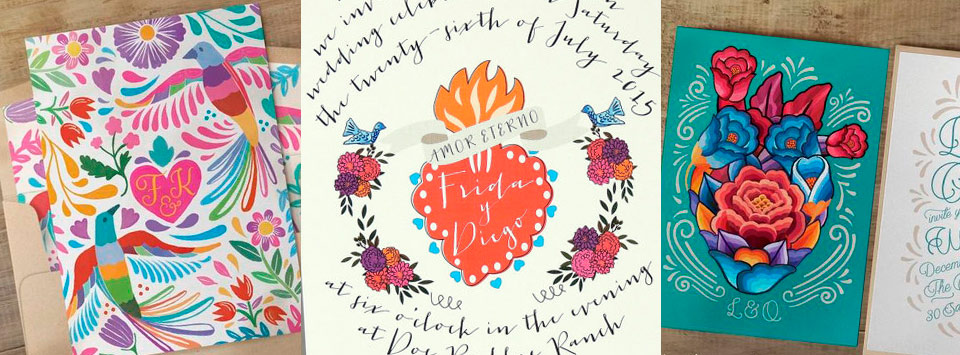 F & K
we inv
wedding celeb
Saturday
the twenty-sixth of July 2015
AMOR ETERNO
Frida
y
Diego
at six o'clock in the evening
at Dos
Ranch
L & O
E
invite y
Decem
The
30 Sa